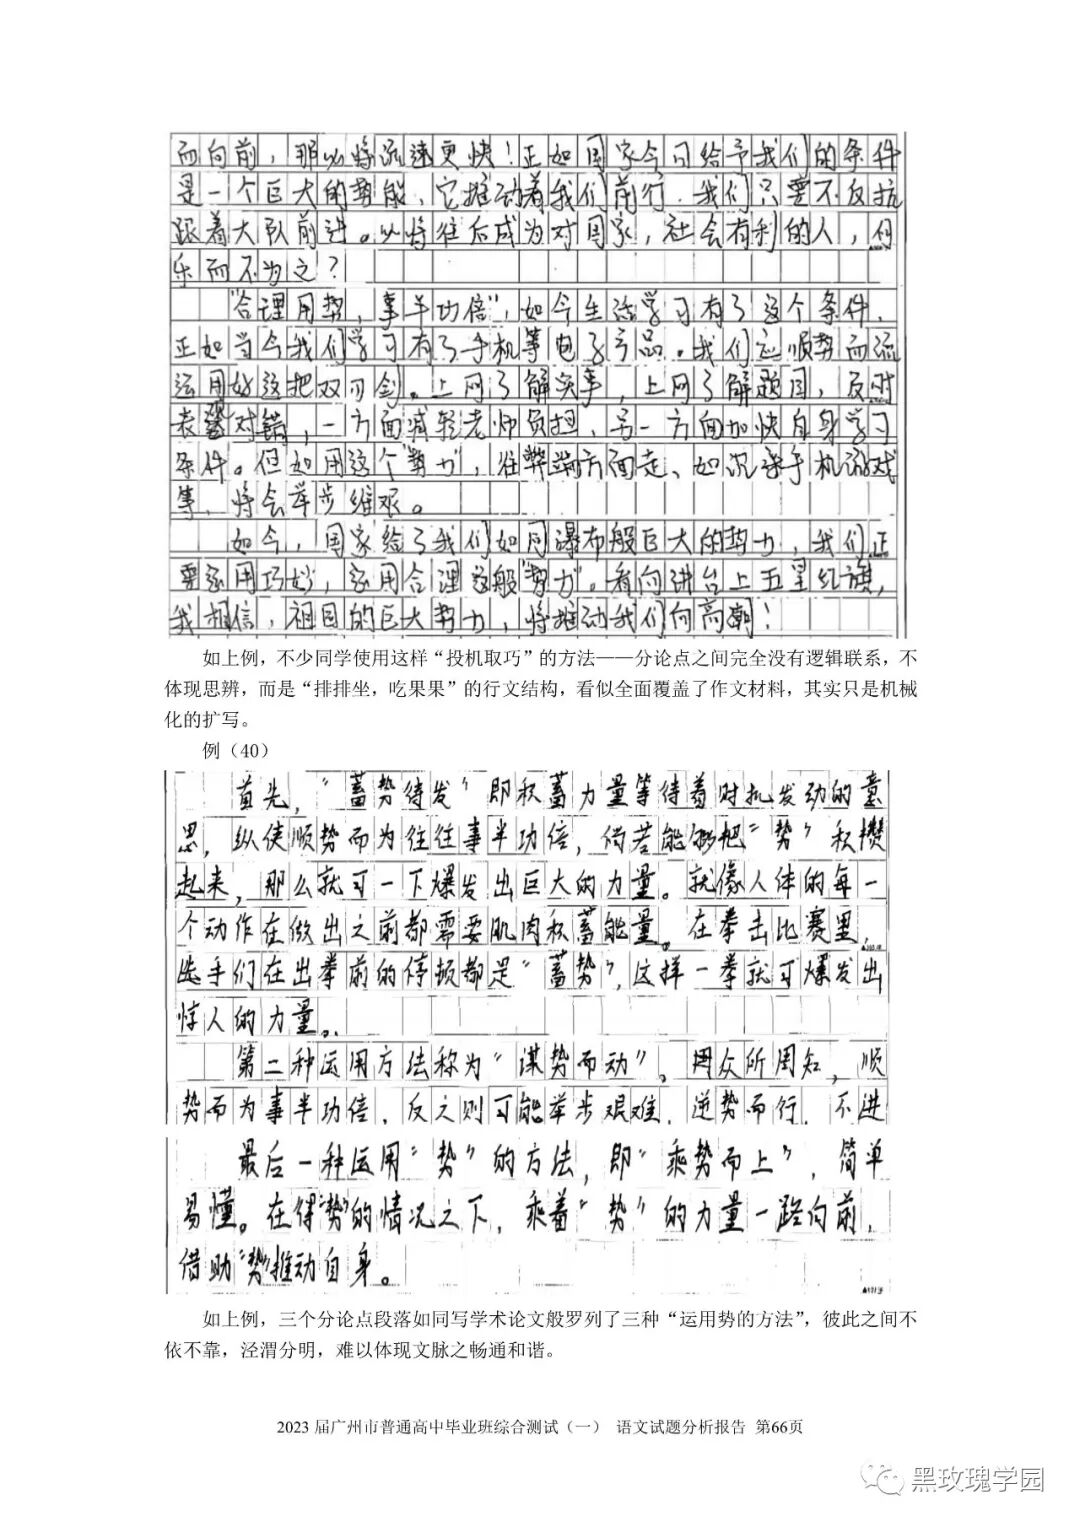 而向前，那必将流速更快！正如国家今可给予我们的条件
是一个巨大的势能，它推动着我们前行．我们只要不反抗
跟着大队前进。必将往后成为对国家，社会有利的人，何
乐而不为之？
“合理用势，事半功倍”，如今生活学习有了这个条件．
正如当今我们学习有了手机等电子产品．我们应顺势而流
运用好这把双刃剑。上网了解实事，上网了解题目，及时
对错，一方面减轻老师负担，另一方面加快自身学习
条件。但如用这个“势力”，往弊端方面走、如沉迷手机游戏
等，将会举步维艰。
如今，国家给了我们如同瀑布般巨大的势力，我们正
要家用巧妙，家用合理这般“势力”。看向讲台上五星红旗，
我相信，祖国的巨大势力，将推动我们向高潮！
如上例，不少同学使用这样“投机取巧”的方法——分论点之间完全没有逻辑联系，不
体现思辨，而是“排排坐，吃果果”的行文结构，看似全面覆盖了作文材料，其实只是机械
化的扩写。
例（40）
首先，“蓄势待发”即积蓄力量等待着时机发动的意
思，纵使顺势而为往往事半功倍，倘若能够把“势”积攒
起来，那么就可一下爆发出巨大的力量。就像人体的每一
个动作在做出之前都需要肌肉积蓄能量。在拳击比赛里，
选手们在出拳前的停顿都是“蓄势”，这样一拳就可爆发出
惊人的力量。
第二种运用方法称为“谋势而动”。众所周知，顺
势而为事半功倍．反之则可能举步艰难．逆势而行．不进
最后一种运用“势”的方法，即“乘势而上”，简单
易懂。在得“势”的情况之下，乘着“势”的力量一路向前，
借助“势”推动自身。
如上例，三个分论点段落如同写学术论文般罗列了三种“运用势的方法”，彼此之间不
依不靠，泾渭分明，难以体现文脉之畅通和谐。
2023 届广州市普通高中毕业班综合测试（一） 语文试题分析报告 第66页
黑玫瑰学园